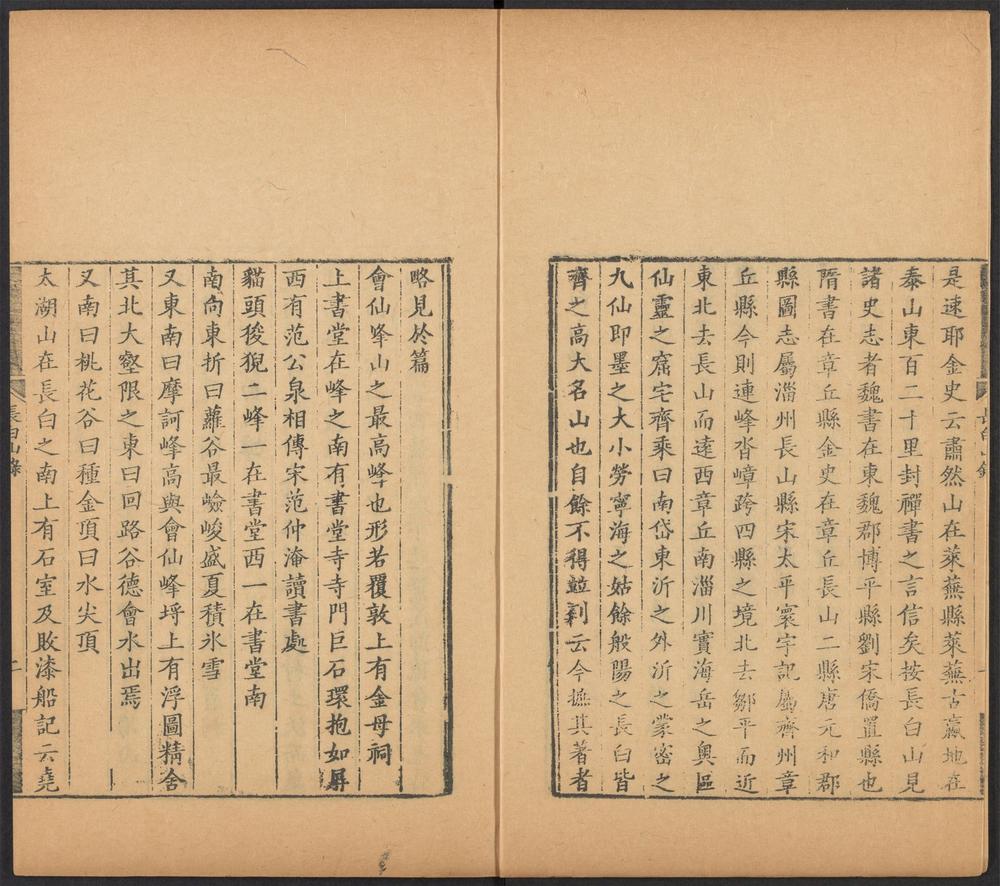 是速耶金史云肅然山在萊蕪縣萊蕪古嬴地在
泰山東百二十里封禪書之言信矣按長白山見
諸史志者魏書在東魏郡博平縣劉宋僑置縣也
隋書在章丘縣金史在章丘長山二縣唐元和郡
縣圖志屬淄州長山縣宋太平寰宇記屬齊州章
丘縣今則連峰沓嶂跨四縣之境北去鄒平而近
東北去長山而遠西章丘南淄川實海岳之奧區
仙靈之窟宅齊乘曰南岱東沂之外沂之蒙密之
九仙即墨之大小勞寧海之姑餘般陽之長白皆
齊之高大名山也自餘不得竝列云今摭其著者
略見於篇
會仙峰山之最高峰也形若覆敦上有金母祠
上書堂在峰之南有書堂寺寺門巨石環抱如屏
西有范公泉相傳宋范仲淹讀書處
貓頭狻猊二峰一在書堂西一在書堂南
南向東折曰蘿谷最嶮峻盛夏積氷雪
又東南曰摩訶峰高與會仙峰埒上有浮圖精舍
其北大壑限之東曰回路谷德會水出焉
又南曰桃花谷曰種金頂曰水尖頂
太湖山在長白之南上有石室及敗漆船記云堯
長白山錄
二